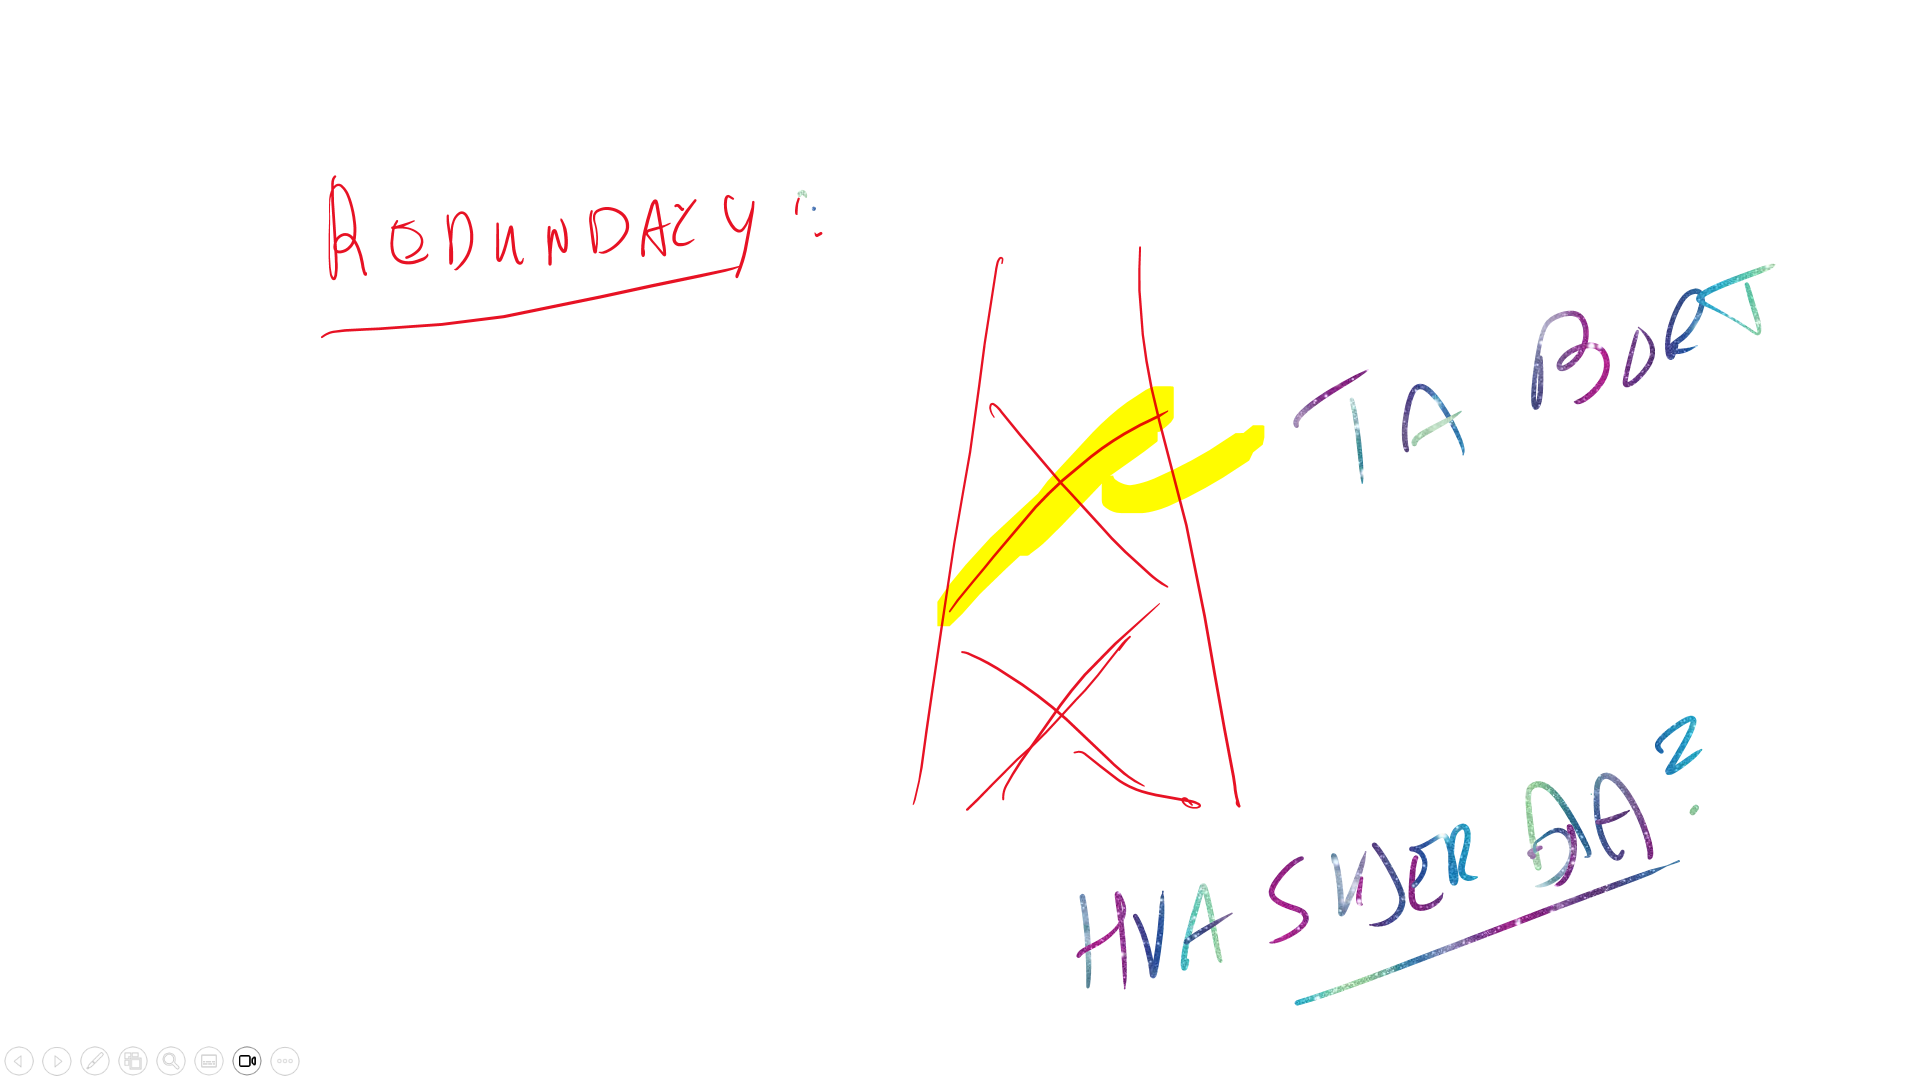 REDUNDACY:
TA BORT
HVA SKJER DA?